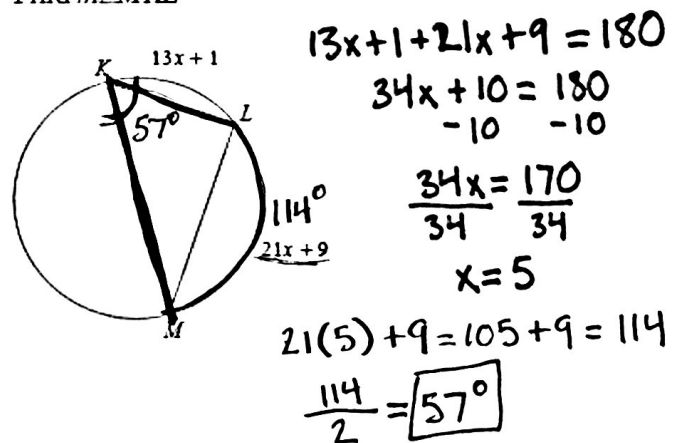 K
13x + 1
L
57°
114°
21x + 9
M
13x+1+21x+9 = 180
34x + 10 = 180
-10 -10
34x = 170
34 34
x = 5
21(5) + 9 = 105 + 9 = 114
114
2
= 57°